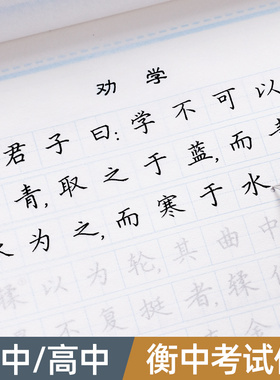 劝学
君子曰:学不可以
青,取之于蓝,而青
为之,而寒于水
𫐓以为轮,其曲中
不复挺者,𫐓
金
中/高中
衡中考试